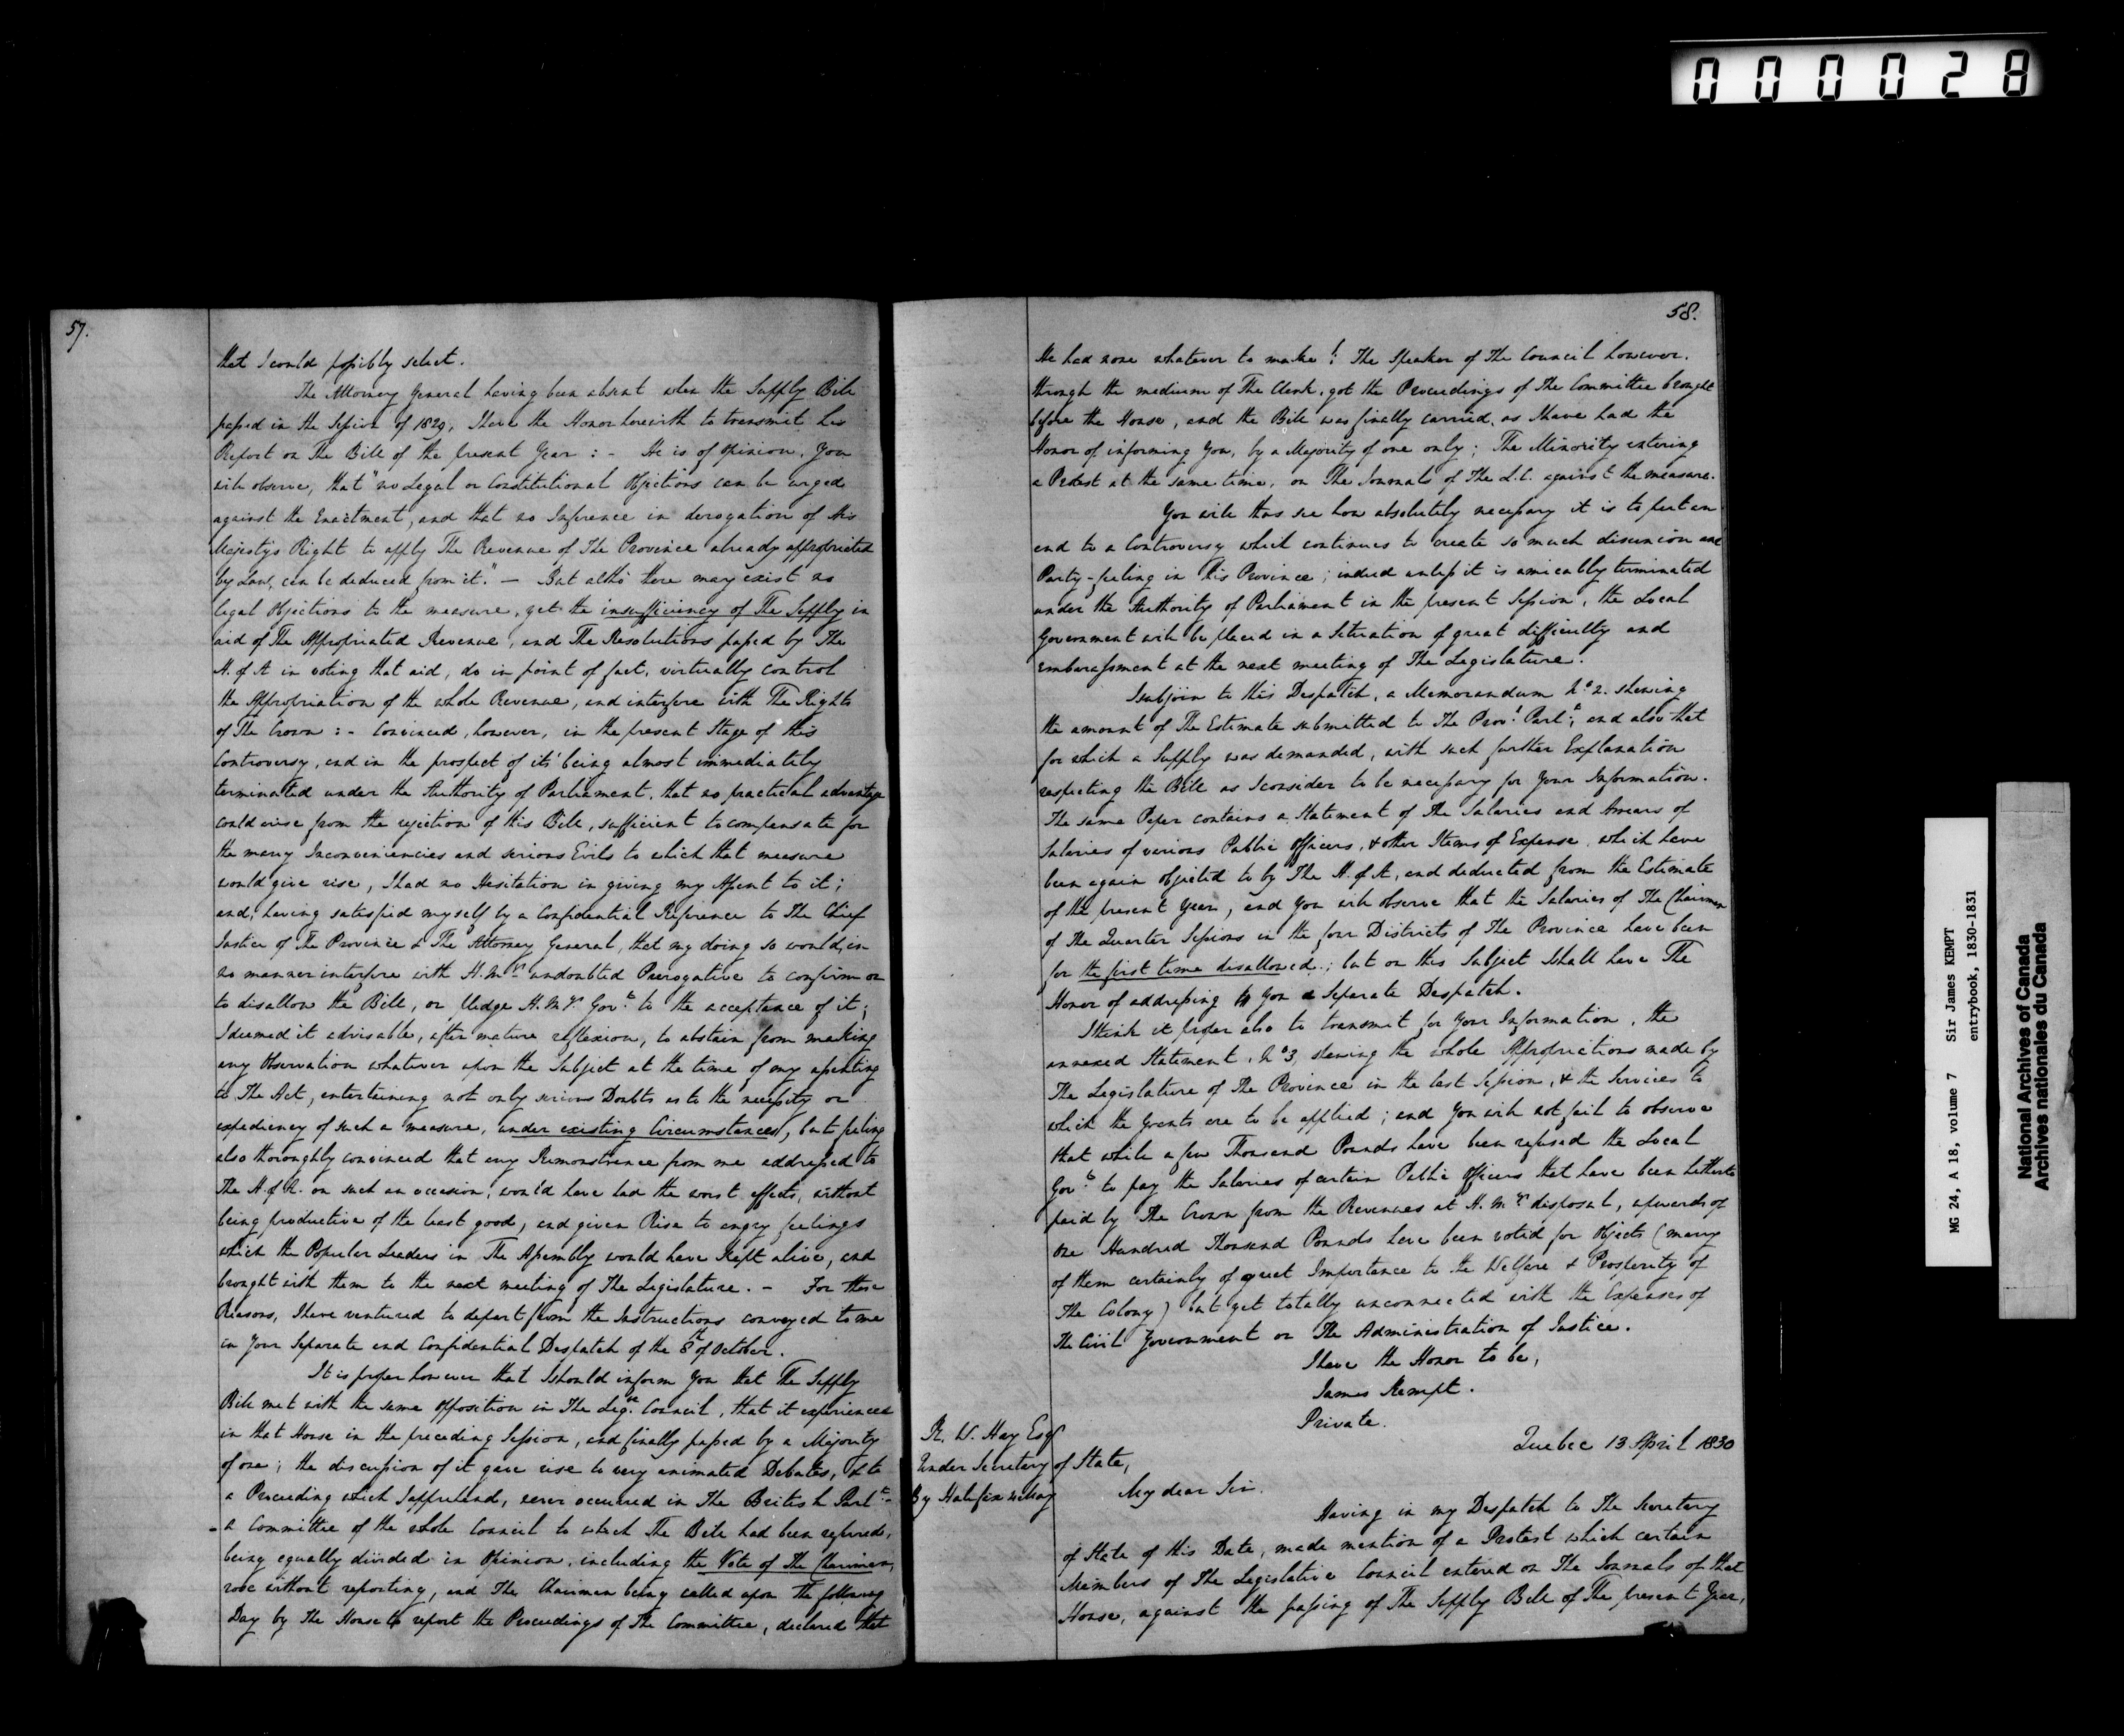 000028
57.
that I could possibly select.
The Attorney General having been absent when the Supply Bill
passed in the Session of 1829, I have the Honor herewith to transmit his
Report on The Bill of the present Year : - He is of opinion, You
will observe, that "no Legal or Constitutional Objections can be urged
against the Enactment, and that no Inference in derogation of His
Majesty's Right to apply The Revenue of The Province already appropriated
by Law, can be deduced from it." - But altho' there may exist no
legal Objections to the measure, yet the insufficiency of The Supply in
aid of The Appropriated Revenue, and The Resolutions passed by The
H. of A in voting that aid, do in point of fact, virtually control
the Appropriation of the whole Revenue, and interfere with The Rights
of The Crown : - Convinced, however, in the present Stage of this
Controversy, and in the prospect of its' being almost immediately
terminated under the Authority of Parliament, that no practical advantage
could arise from the rejection of this Bill, sufficient to compensate for
the many Inconveniencies and serious Evils to which that measure
would give rise, I had no Hesitation in giving my Assent to it;
and, having satisfied myself by a Confidential Reference to The Chief
Justice of The Province & The Attorney General, that my doing so would, in
no manner interfere with H. M's undoubted Prerogative to confirm or
to disallow the Bill, or pledge H. M's Govt. to the acceptance of it;
I deemed it advisable, after mature reflexion, to abstain from making
any Observation whatever upon the Subject at the time of my assenting
to The Act, entertaining not only serious Doubts as to the necessity or
expediency of such a measure, under existing Circumstances, but feeling
also thoroughly convinced that any Remonstrance from me addressed to
The H. of A. on such an occasion, would have had the worst effects, without
being productive of the least good, and given Rise to angry feelings
which the Popular Leaders in The Assembly would have kept alive, and
brought with them to the next meeting of The Legislature. - For these
Reasons, I have ventured to depart from the Instructions conveyed to me
in Your Separate and Confidential Despatch of the 8th of October.
It is proper however that I should inform You that The Supply
Bill met with the same opposition in The Legve. Council, that it experienced
in that House in the preceding Session, and finally passed by a Majority
of one; the discussion of it gave rise to very animated Debates, & to
a Proceeding which I apprehend, never occurred in The British Parlt. -
- A Committee of the whole Council to which The Bill had been referred,
being equally divided in Opinion, including the Vote of The Chairman,
rose without reporting, and The Chairman being called upon The following
Day by The House to report the Proceedings of The Committee, declared that
58.
He had none whatever to make! : The Speaker of The Council however,
through the medium of The Clerk, got the Proceedings of The Committee brought
before the House, and the Bill was finally carried, as I have had the
Honor of informing You, by a Majority of one only; The Minority entering
a Protest at the same time, on The Journals of The L.C. against the measure.
You will thus see how absolutely necessary it is to put an
end to a Controversy which continues to create so much disunion and
Party-feeling in this Province; indeed unless it is amicably terminated
under the Authority of Parliament in the present Session, the Local
Government will be placed in a Situation of great difficulty and
embarassment at the next meeting of The Legislature.
I subjoin to this Despatch, a Memorandum No 2. shewing
the amount of The Estimate submitted to The Provl. Parlt., and also that
for which a Supply was demanded, with such further Explanation
respecting the Bill as I consider to be necessary for Your Information.
The same Paper contains a Statement of The Salaries and Arrears of
Salaries of various Public Officers, & other Items of Expense, which have
been again objected to by The H. of A, and deducted from the Estimate
of the present Year, and You will observe that the Salaries of The Chairmen
of The Quarter Sessions in the four Districts of The Province have been
for the first time disallowed.; but on this Subject I shall have The
Honor of addressing to You a Separate Despatch.
I think it proper also to transmit for Your Information, the
annexed Statement, No 3, shewing the whole Appropriations made by
The Legislature of The Province in the last Session, & the Services to
which the Grants are to be applied; and You will not fail to observe
that while a few Thousand Pounds have been refused the Local
Govt. to pay the Salaries of certain Public Officers that have been hitherto
paid by The Crown from the Revenues at H. M's disposal, upwards of
One Hundred Thousand Pounds have been voted for Objects (many
of them certainly of great Importance to the Welfare & Prosperity of
The Colony) but yet totally unconnected with the Expenses of
The Civil Government or The Administration of Justice.
I have the Honor to be,
James Kempt.
Private.
Quebec 13 April 1830
R. W. Hay Esqr
Under Secretary of State,
By Halifax
My dear Sir.
Having in my Despatch to The Secretary
of State of this Date, made mention of a Protest which certain
Members of The Legislative Council entered on The Journals of that
House, against the passing of The Supply Bill of The present Year,
MG 24, A 18, volume 7 Sir James KEMPT
entrybook, 1830-1831
National Archives of Canada
Archives nationales du Canada